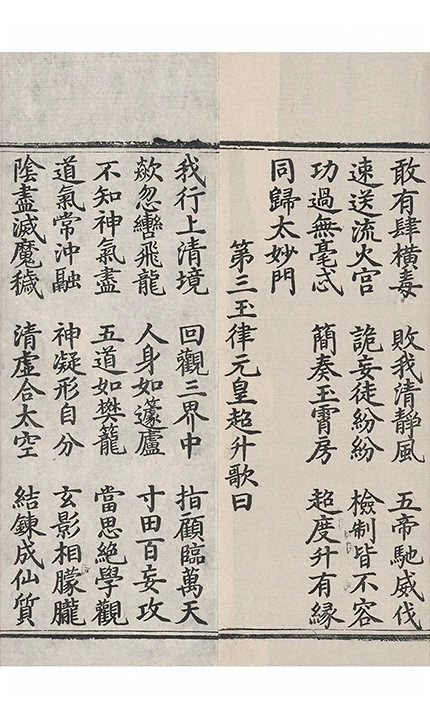 敢有肆橫毒　敗我清靜風　五帝馳威伐
速送流火宮　詭妄徒紛紛　檢制皆不容
功過無毫忒　簡奏玉霄房　超度升有緣
同歸太妙門
第三玉律元皇超升歌曰
我行上清境　回觀三界中　指顧臨萬天
歘忽轡飛龍　人身如籧廬　寸田百妄攻
不知神氣盡　五道如樊籠　當思絕學觀
道氣常沖融　神凝形自分　玄影相朦朧
陰盡滅魔穢　清虛合太空　結鍊成仙質